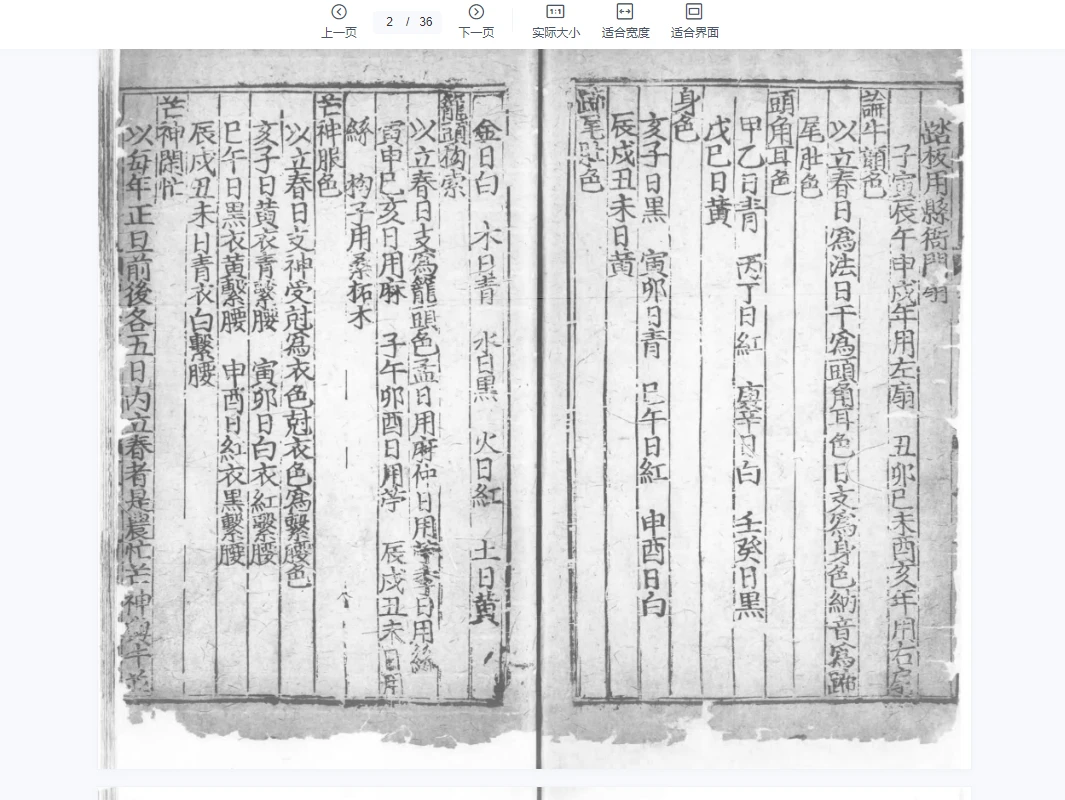 上一页
2 / 36
下一页
实际大小
适合宽度
适合界面
踏板用縣衙門
子寅辰午申戌年用左扇 丑卯巳未酉亥年用右扇
論牛顏色
以立春日爲法日干爲頭角耳色日支爲身色納音爲蹄
尾肚色
頭角耳色
甲乙日青 丙丁日紅 庚辛日白 壬癸日黑
戊巳日黃
身色
亥子日黑 寅卯日青 巳午日紅 申酉日白
辰戌丑未日黃
蹄尾肚色
金日白 木日青 水日黑 火日紅 土日黃
籠頭构索
以立春日支爲籠頭色孟日用麻仲日用苧季日用絲
寅申巳亥日用麻 子午卯酉日用苧 辰戌丑未日用
絲 构子用桑柘木
芒神服色
以立春日支神受尅爲衣色尅衣色爲繫腰色
亥子日黃衣青繫腰 寅卯日白衣紅繫腰
巳午日黑衣黃繫腰 申酉日紅衣黑繫腰
辰戌丑未日青衣白繫腰
芒神閑忙
以每年正旦前後各五日内立春者是農忙芒神與牛並